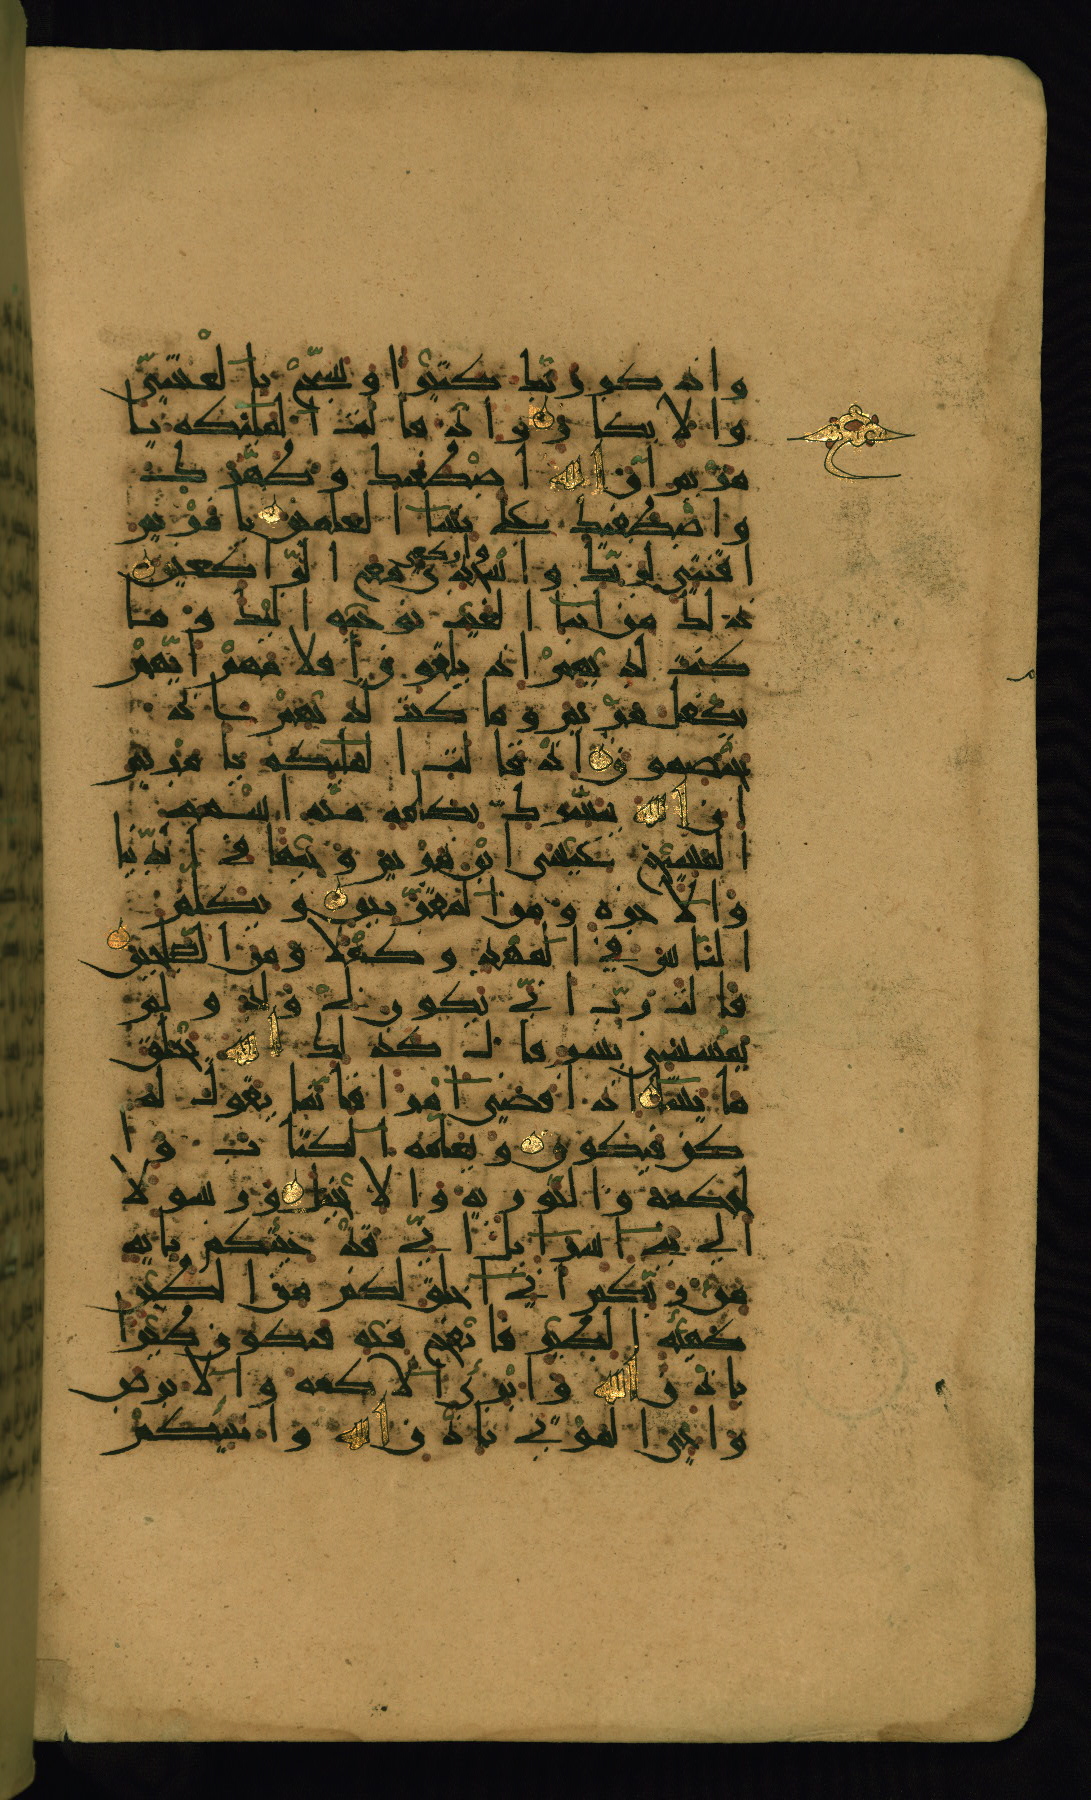 واذكر ربك كثيرا وسبح بالعشي
والابكار واذ قالت الملئكة يا
مريم ان الله اصطفيك وطهرك
واصطفيك على نسا العلمين يا مريم
اقنتي لربك واسجدي واركعي مع الراكعين
ذلك من انبا الغيب نوحيه اليك وما
كنت لديهم اذ يلقون اقلامهم ايهم
يكفل مريم وما كنت لديهم اذ
يختصمون اذ قالت الملئكة يا مريم
ان الله يبشرك بكلمة منه اسمه
المسيح عيسى ابن مريم وجيها في الدنيا
والاخرة ومن المقربين ويكلم
الناس في المهد وكهلا ومن الصلحين
قالت رب انى يكون لي ولد ولم
يمسسني بشر قال كذلك الله يخلق
ما يشا اذا قضى امرا فانما يقول له
كن فيكون ويعلمه الكتاب وا
لحكمة والتورية والانجيل ورسولا
الى بني اسرايل اني قد جئتكم باية
من ربكم اني اخلق لكم من الطين
كهيئة الطير فانفخ فيه فيكون طيرا
باذن الله وابرئ الاكمه والابرص
واحي الموتى باذن الله وانبئكم